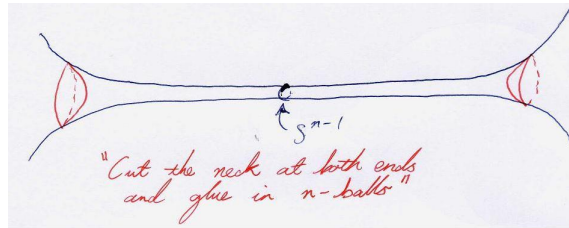 S^{n-1}
"Cut the neck at both ends
and glue in n-balls"